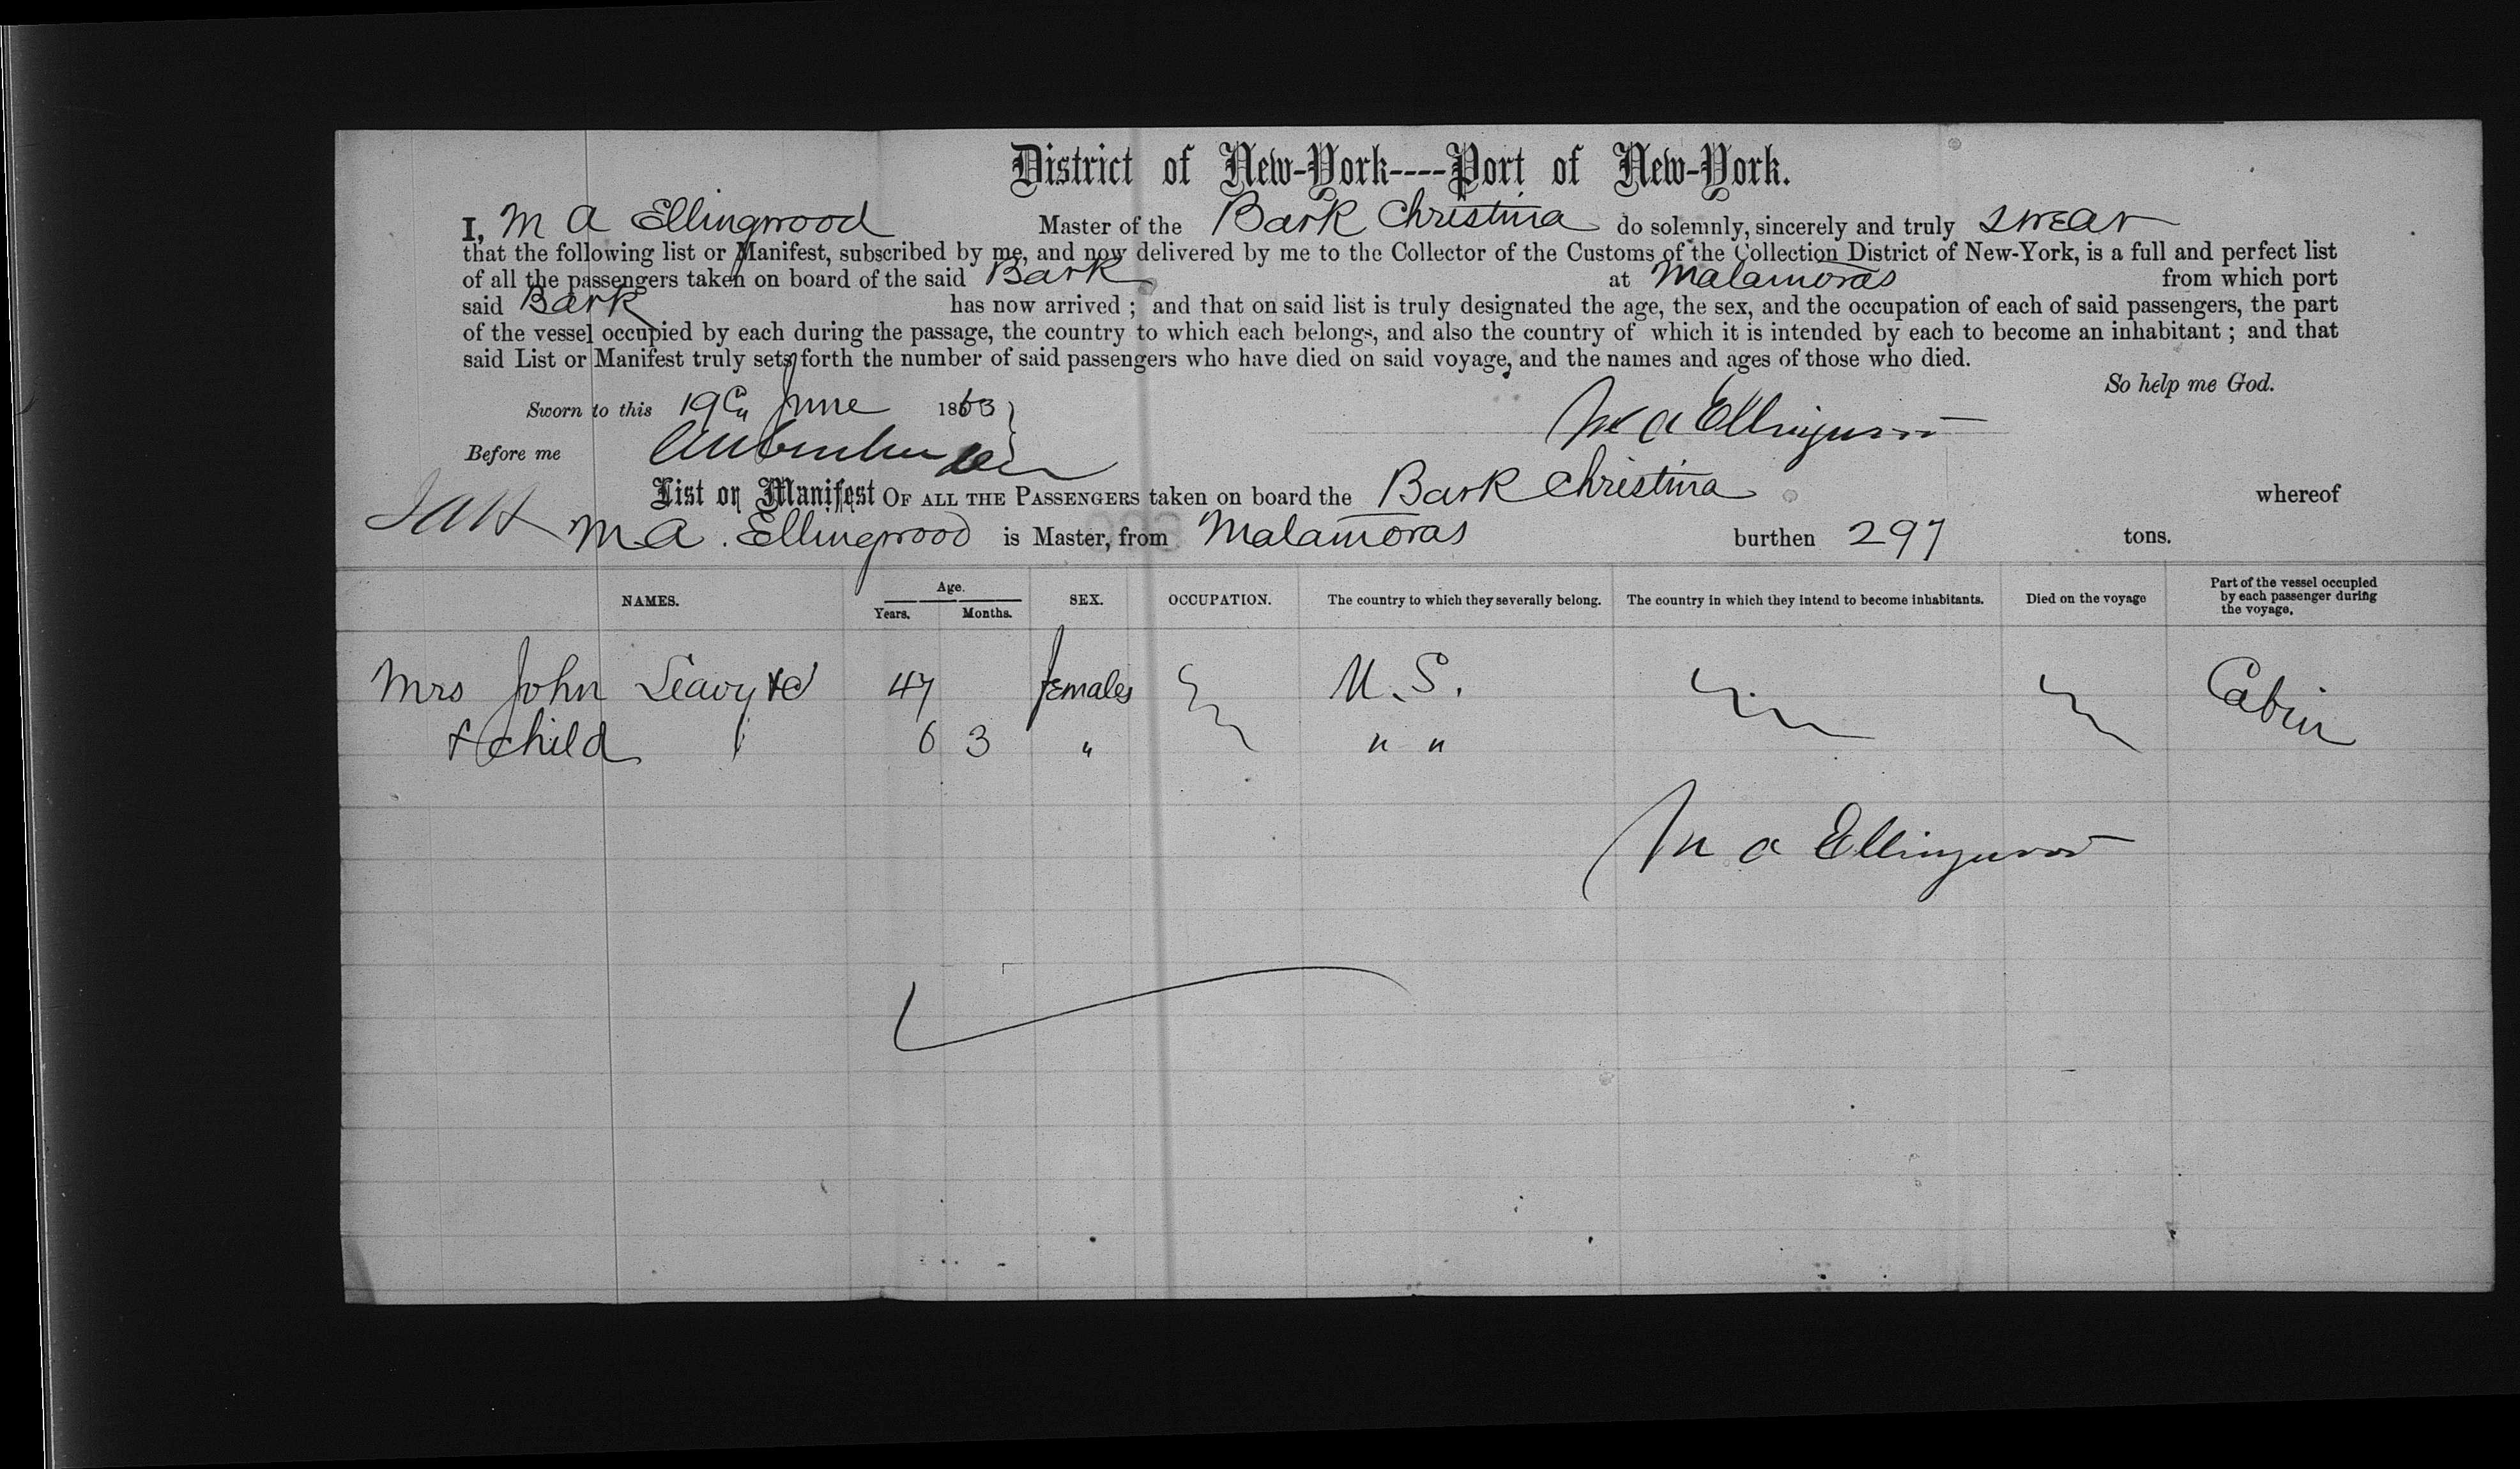 District of New-York----Port of New-York.
I, M A Ellingwood Master of the Bark Christina do solemnly, sincerely and truly swear
that the following list or Manifest, subscribed by me, and now delivered by me to the Collector of the Customs of the Collection District of New-York, is a full and perfect list
of all the passengers taken on board of the said Bark at Matamoras from which port
said Bark has now arrived ; and that on said list is truly designated the age, the sex, and the occupation of each of said passengers, the part
of the vessel occupied by each during the passage, the country to which each belongs, and also the country of which it is intended by each to become an inhabitant ; and that
said List or Manifest truly sets forth the number of said passengers who have died on said voyage, and the names and ages of those who died.
So help me God.
Sworn to this 19th June 1863
M A Ellingwood
Before me
List or Manifest OF ALL THE PASSENGERS taken on board the Bark Christina whereof
M.A. Ellingwood is Master, from Matamoras burthen 297 tons.
NAMES. Age. Years. Months. SEX. OCCUPATION. The country to which they severally belong. The country in which they intend to become inhabitants. Died on the voyage Part of the vessel occupied by each passenger during the voyage.
Mrs John Leavy 47 females U.S. Cabin
& child 6 3 " " "
M A Ellingwood